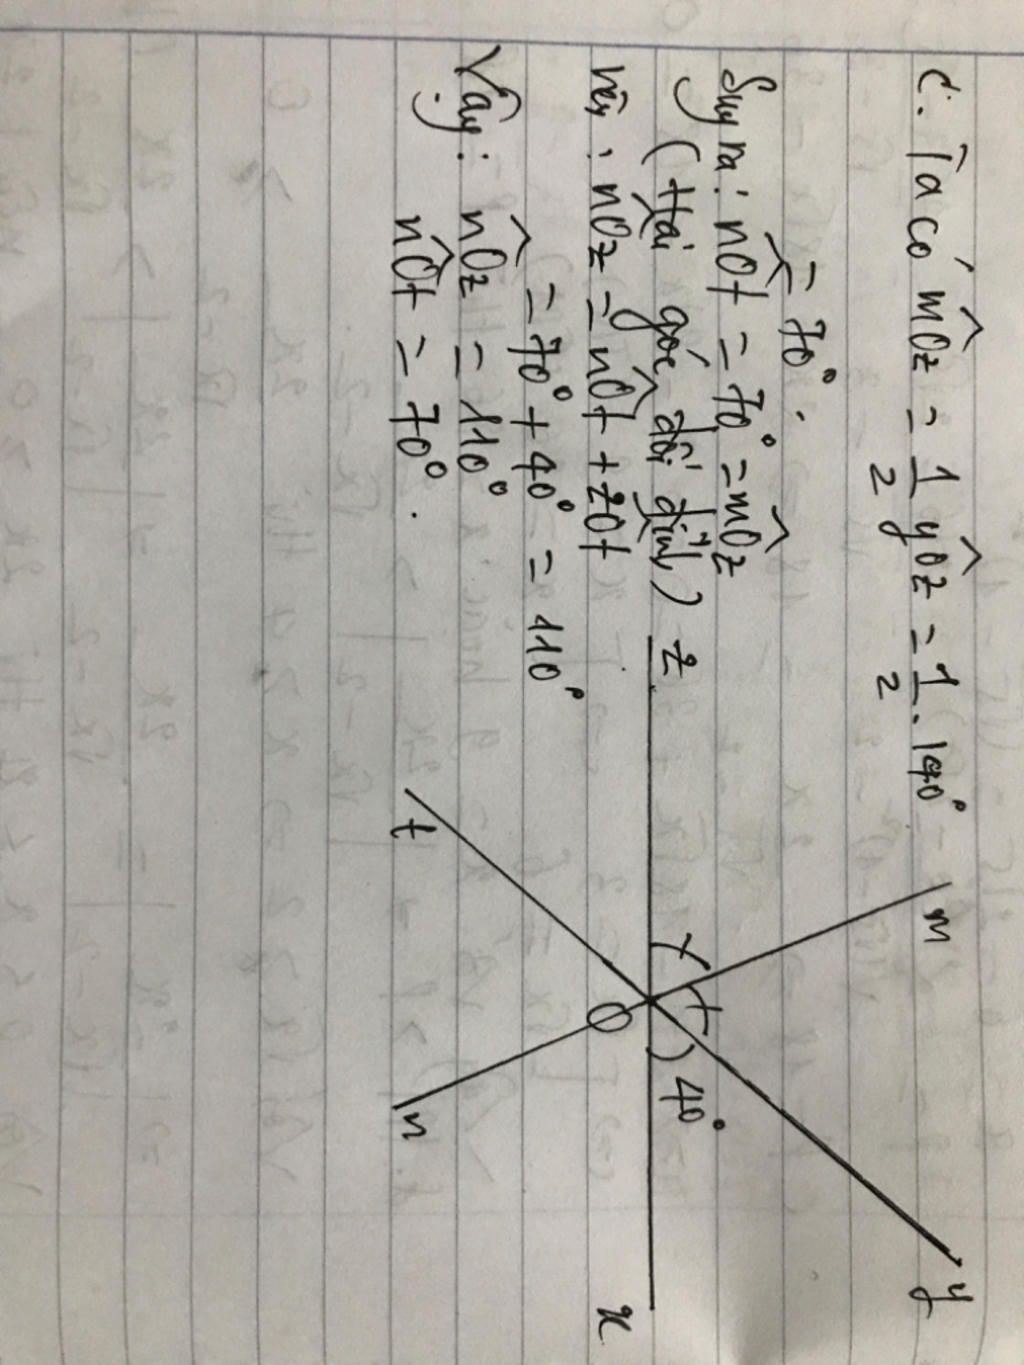 c. Ta có mOz = 1/2 yOz = 1/2 . 140°
= 70°.
Suy ra: nOt = 70° = mOz
(Hai góc đối đỉnh)
nên: nOz = nOt + zOt
= 70° + 40° = 110°
Vậy: nOz = 110°
nOt = 70°.
m
y
z
40°
O
x
t
n